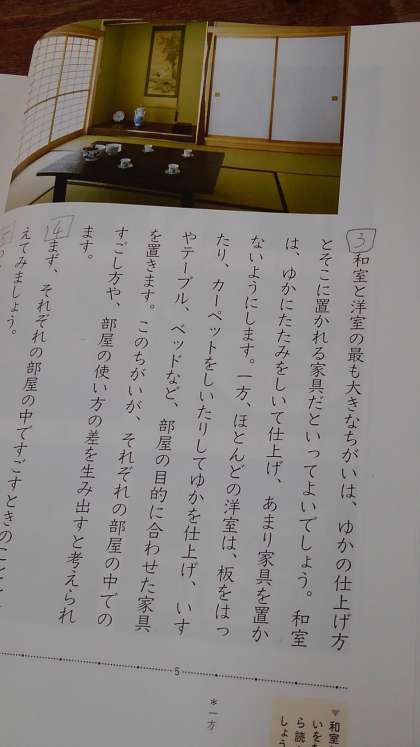 3
和室と洋室の最も大きなちがいは、ゆかの仕上げ方
とそこに置かれる家具だといってよいでしょう。和室
は、ゆかにたたみをしいて仕上げ、あまり家具を置か
ないようにします。一方、ほとんどの洋室は、板をはっ
たり、カーペットをしいたりしてゆかを仕上げ、いす
やテーブル、ベッドなど、部屋の目的に合わせた家具
を置きます。このちがいが、それぞれの部屋の中での
すごし方や、部屋の使い方の差を生み出すと考えられ
ます。
4
まず、それぞれの部屋の中ですごすときのこと
えてみましょう。
5
5
*一方
▼和室
いを
ら読
しょう